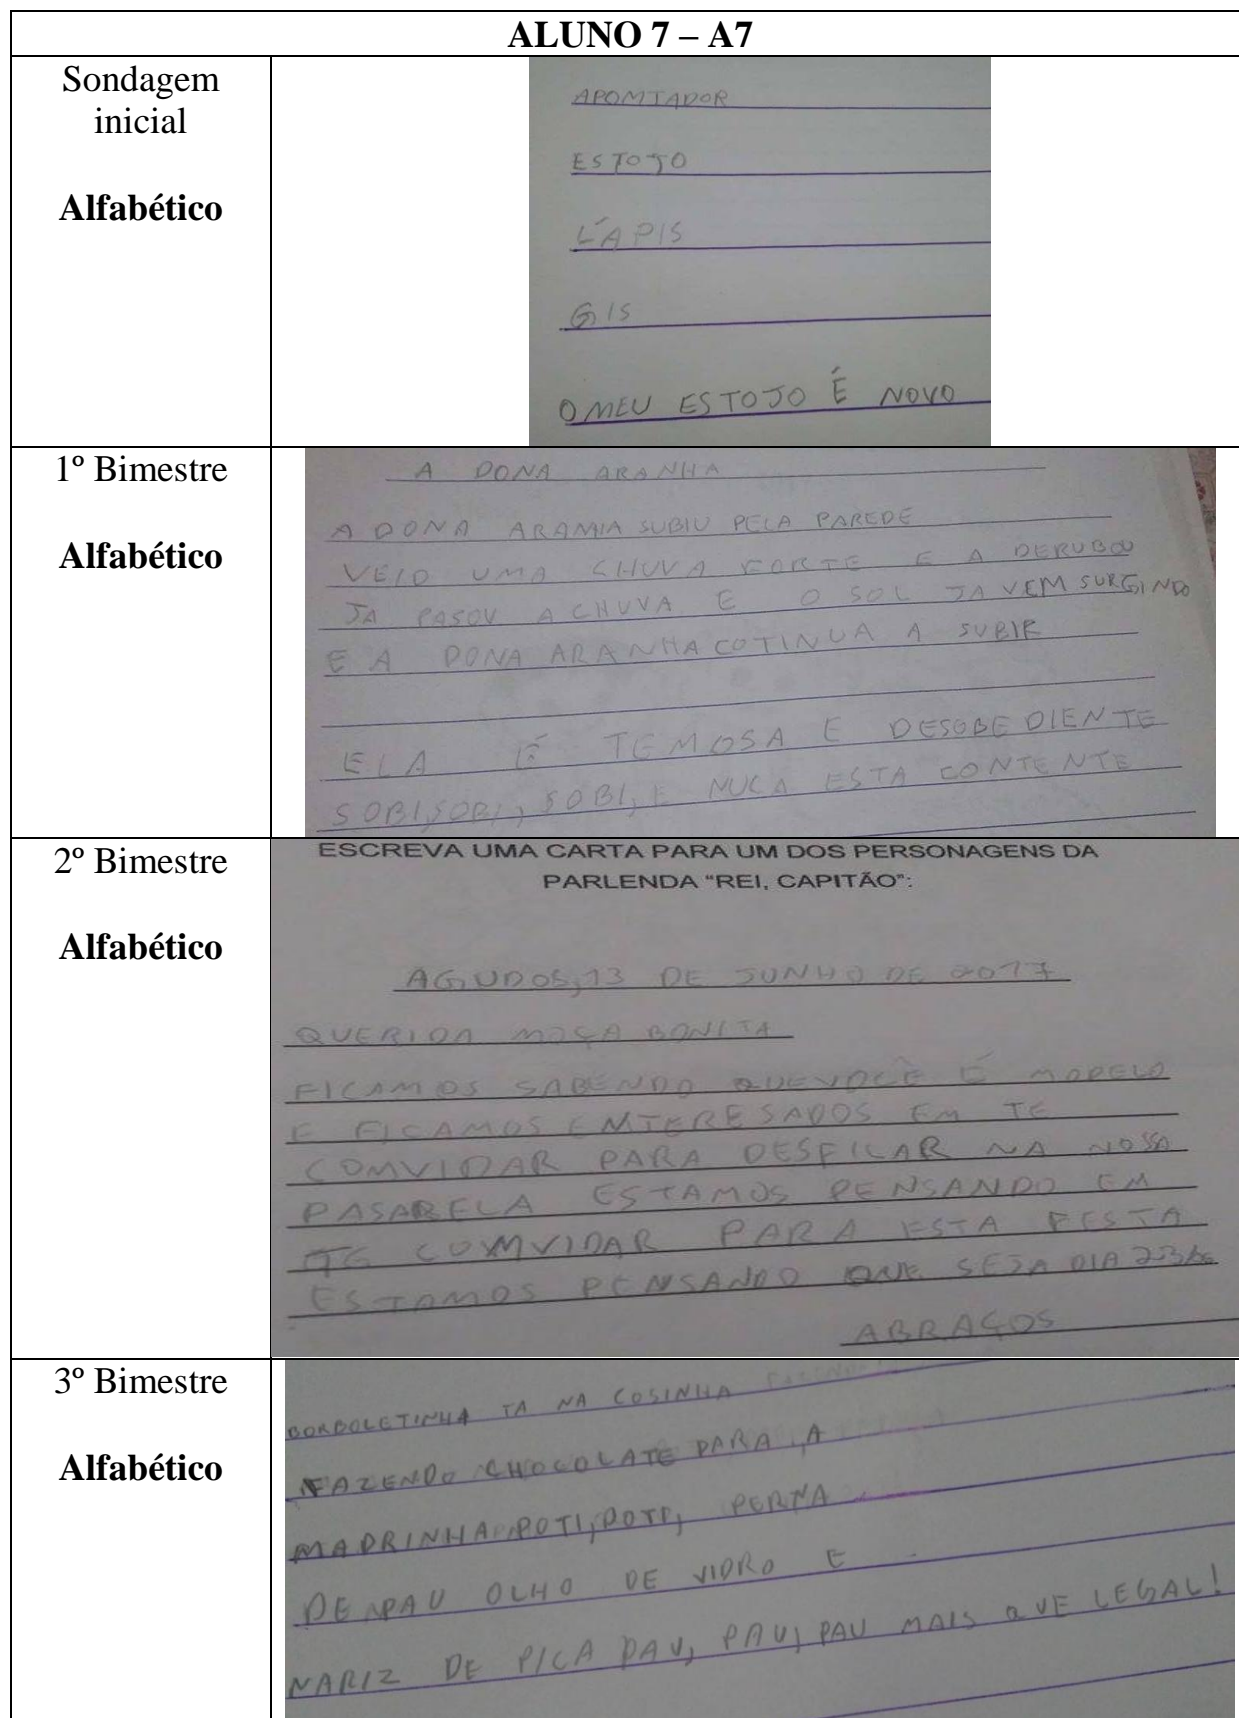 ALUNO 7 – A7
Sondagem
inicial
Alfabético
APOMTADOR
ESTOJO
LÁPIS
GIS
O MEU ESTOJO É NOVO
1º Bimestre
Alfabético
A DONA ARANHA
A DONA ARAMIA SUBIU PELA PAREDE
VEIO UMA CHUVA FORTE E A DERUBOU
JA PASOU A CHUVA E O SOL JA VEM SURGINDO
E A DONA ARANHA COTINUA A SUBIR
ELA É TEMOSA E DESOBEDIENTE
SOBI, SOBI, SOBI, E NUCA ESTA CONTENTE
2º Bimestre
Alfabético
ESCREVA UMA CARTA PARA UM DOS PERSONAGENS DA
PARLENDA “REI, CAPITÃO”:
AGUDOS, 13 DE JUNHO DE 2017
QUERIDA MOÇA BONITA
FICAMOS SABENDO QUE VOCÊ É MODELO
E FICAMOS EMTERESADOS EM TE
COMVIDAR PARA DESFILAR NA NOSSA
PASARELA ESTAMOS PENSANDO EM
TE COMVIDAR PARA ESTA FESTA
ESTAMOS PENSANDO QUE SEJA DIA
ABRAÇOS
3º Bimestre
Alfabético
BORBOLETINHA TA NA COSINHA
FAZENDO CHOCOLATE PARA A
MADRINHA POTI, POTI, PERNA
DE PAU OLHO DE VIDRO E
NARIZ DE PICA PAU, PAU, PAU MAIS QUE LEGAL!